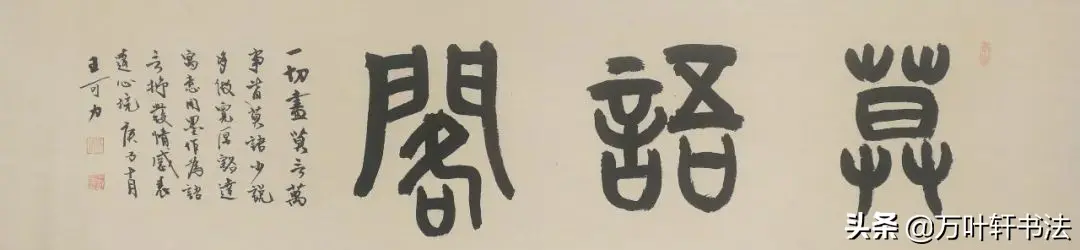 莫語閣
一切盡莫言萬
事皆莫語少説
多做寬厚豁達
寓意用墨作為語
言抒發情感表
達心境庚子十月
王可力
头条 @万叶轩书法